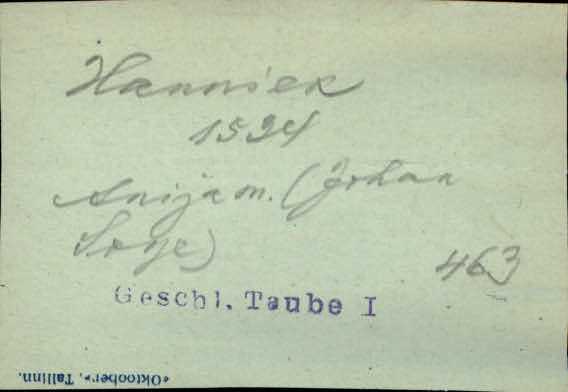 Hanniek
1534
Anija m. (Johan
Soye)
463
Geschl. Taube I
«Oktoober», Tallinn.